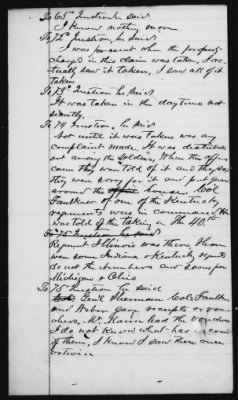 To 65th Question he said
I know nothing more
To 72nd Question, he said
I was present when the property
charged in this claim was taken, I ac-
tually saw it taken, I saw all of it
taken
To 73d Question he said
It was taken in the daytime not
secretly,
To 74 Question, he said
Not until it was taken was any
complaint made. It was distributed
out among the soldiers, When the officers
came they were told of it and they said
they were sorry it and put guard
around the house, Col
Faulkner of one of the Kentucky
regiments was in command. He
was told of the taking, The 40th
To 75 Question he said
Regiment Illinois was there, There
were some Indiana & Kentucky regiments
do not the numbers and some from
Michigan & Ohio
To 76 Question he said
Genl Sherman Col Faulkner
and Hober gave receipts or vou-
chers. Mr. had the vouchers
I do not know what has become
of them, I know I saw them once
between